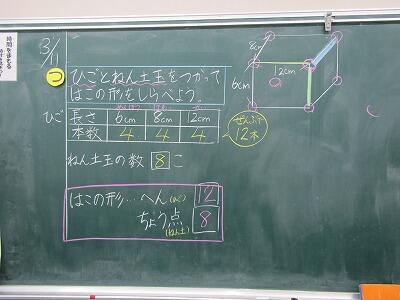 3/11
つ ひごとねん土玉をつかって
はこの形をしらべよう。
ひご 長さ 6cm 8cm 12cm
本数 4 4 4
ぜんぶで
12本
ねん土玉の数 8 こ
はこの形…へん(ひご) 12
ちょう点(ねん土) 8
8cm
12cm
6cm